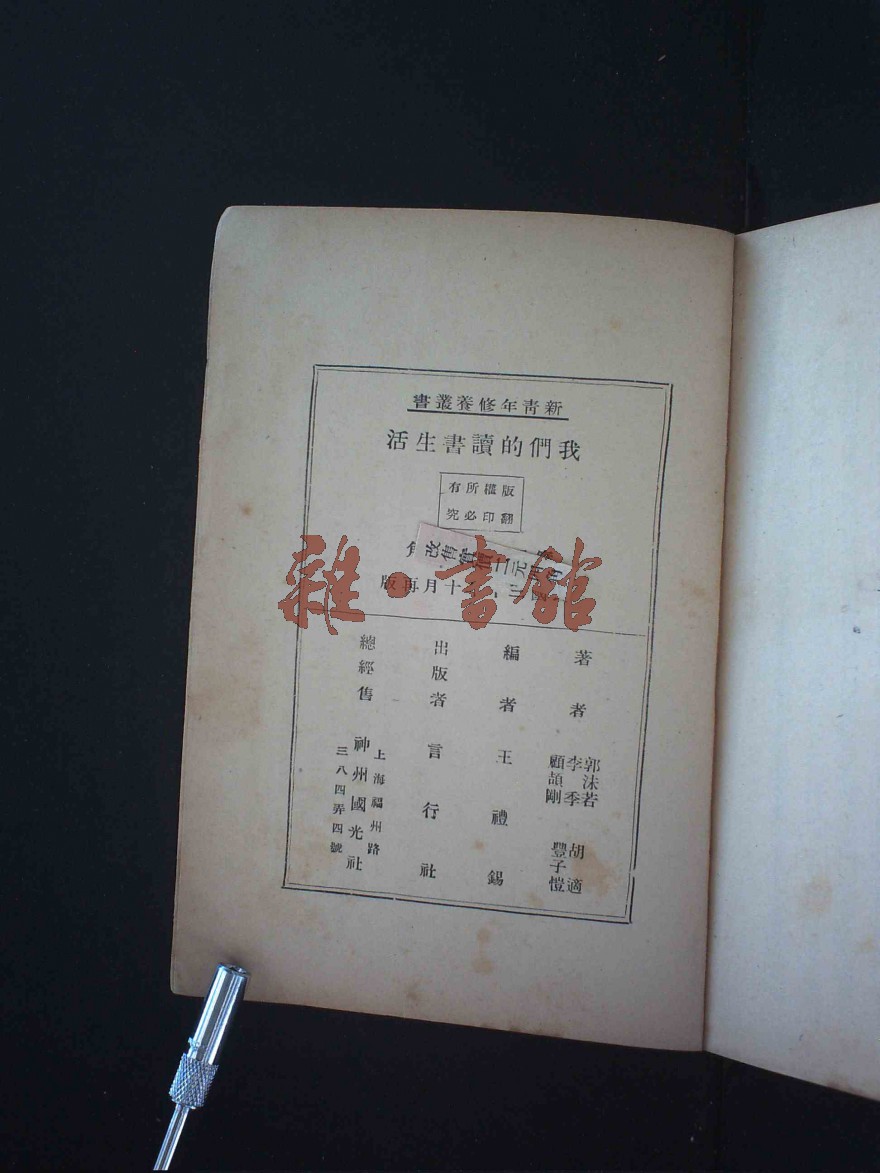 新青年修養叢書
我們的讀書生活
版權所有
翻印必究
改售實價二元
國
十月再版
著者
郭沫若 胡適
李季
顧頡剛 豐子愷
編者 王禮錫
出版者 言行社
總經售
上海福州路
神州國光社
三八四弄四號
雜·書館